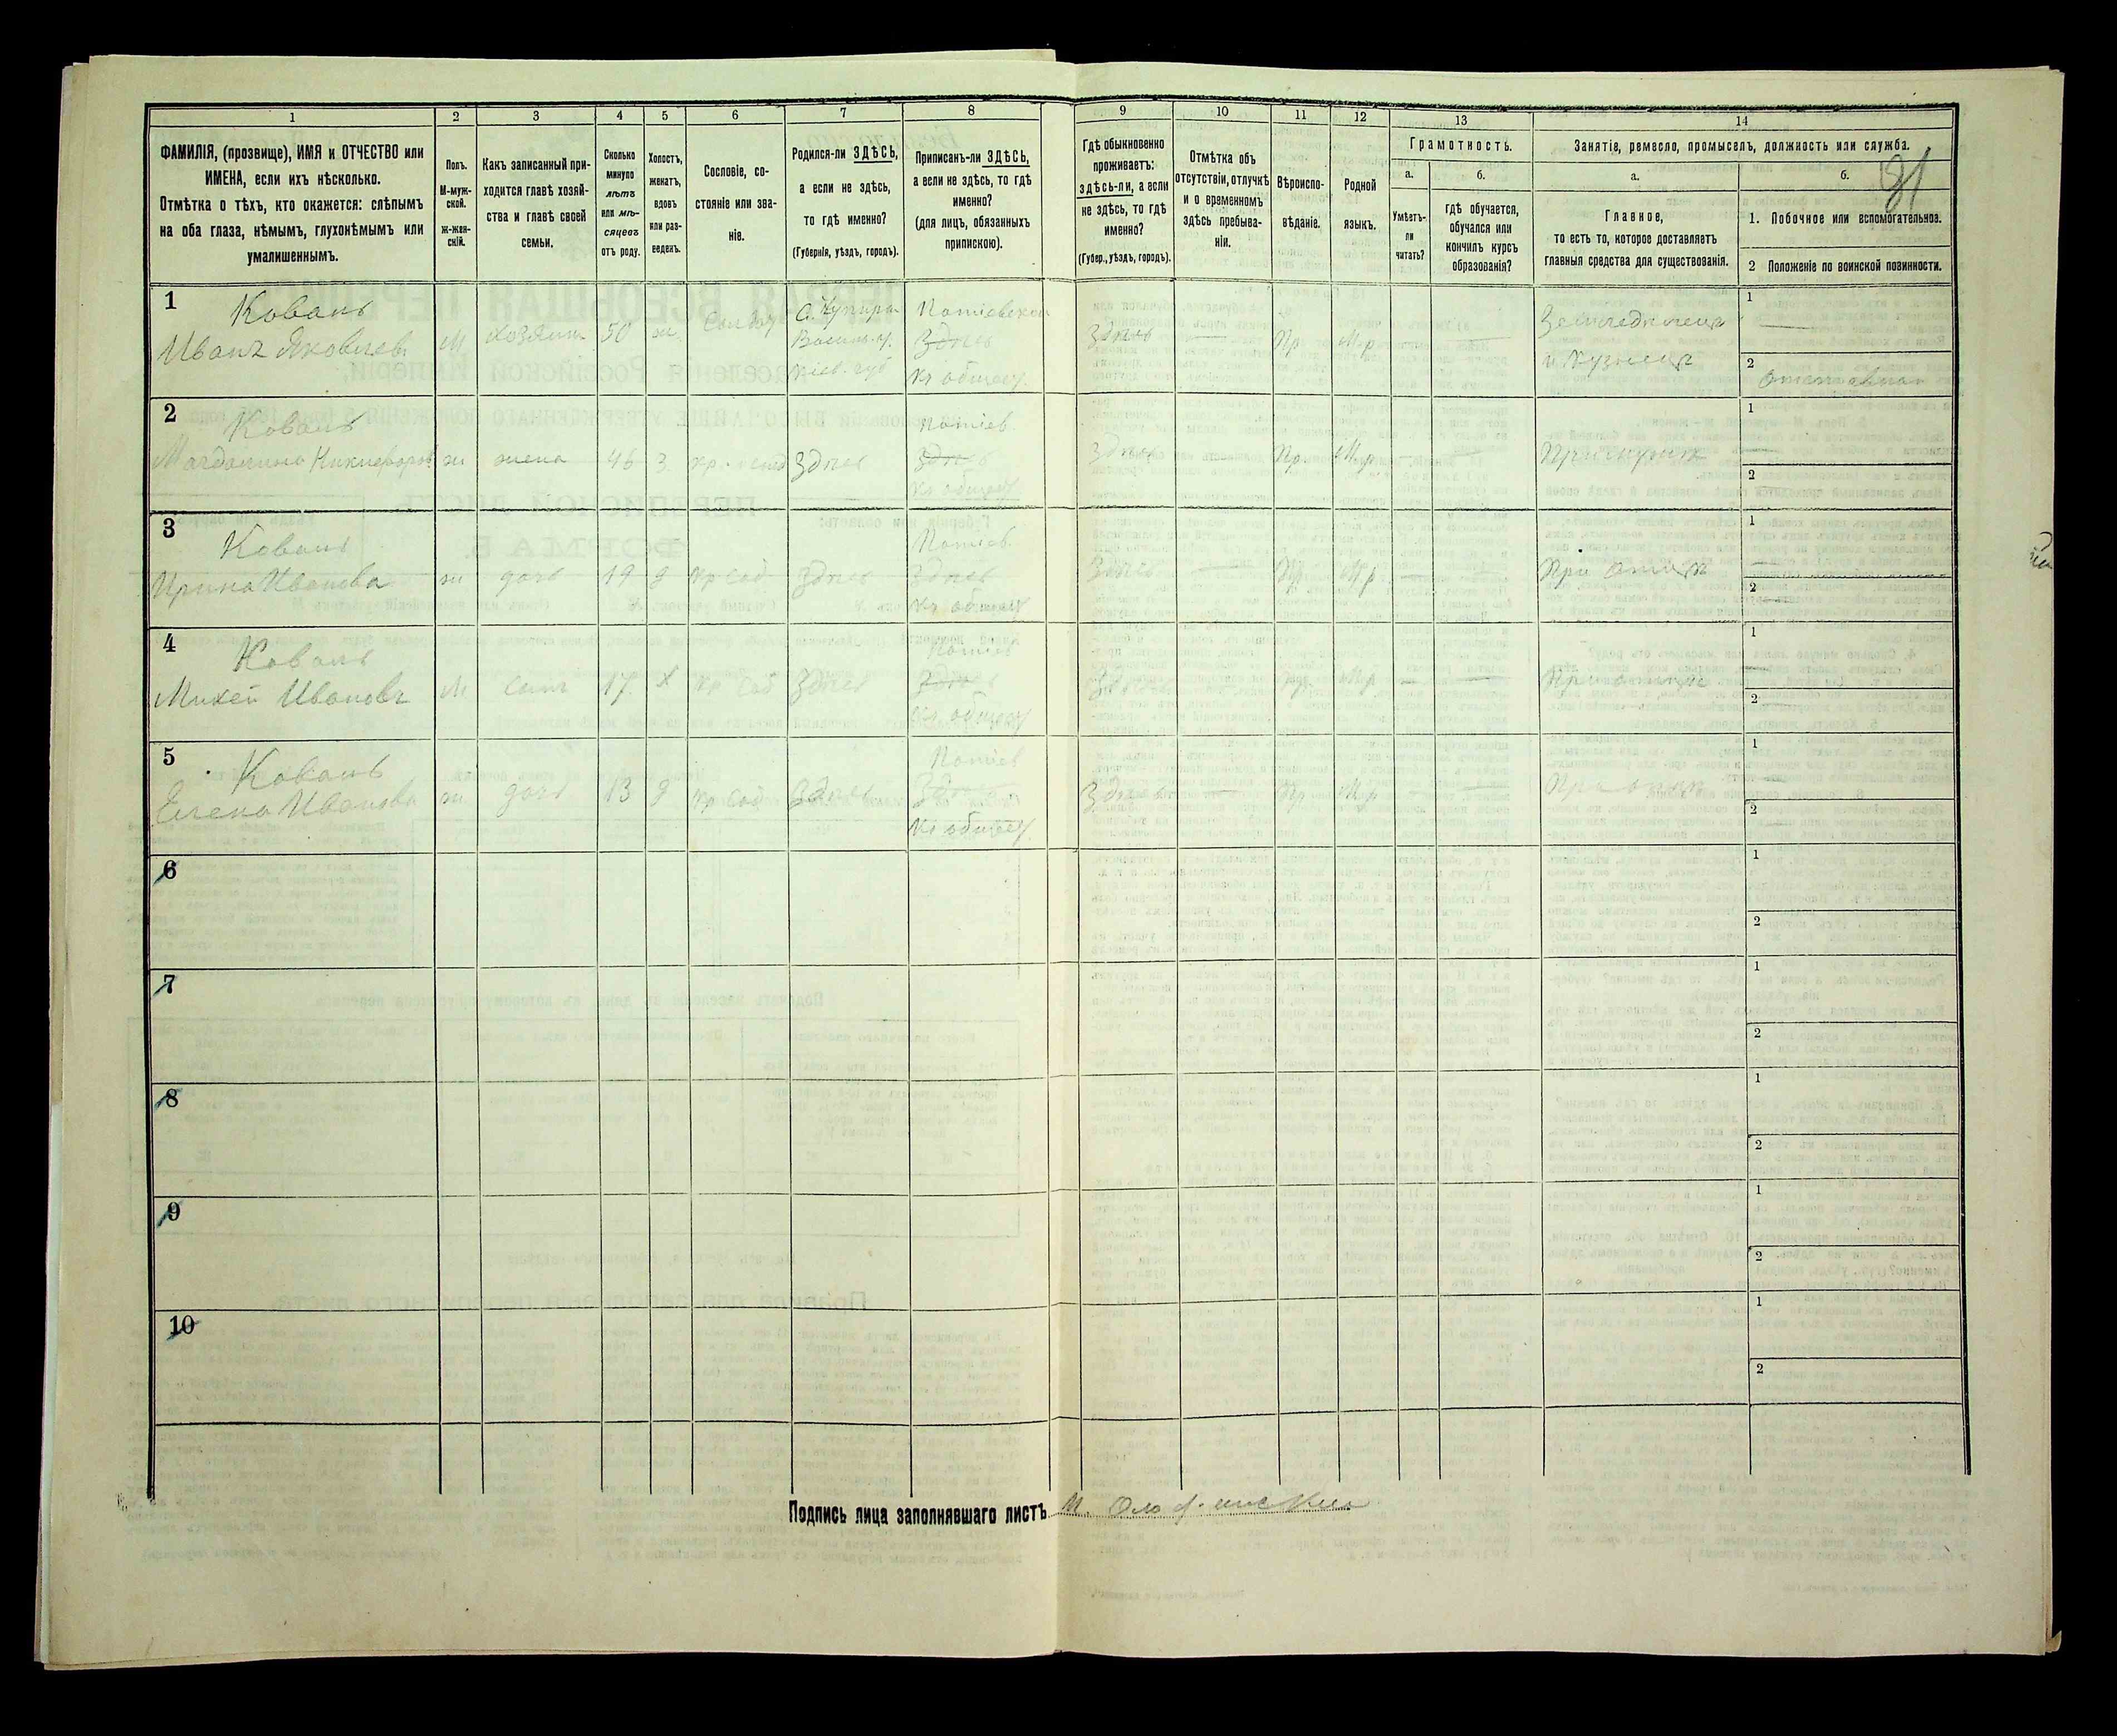 1 2 3 4 5 6 7 8 9 10 11 12 13 14
ФАМИЛІЯ, (прозвище), ИМЯ и ОТЧЕСТВО или
ИМЕНА, если ихъ нѣсколько.
Отмѣтка о тѣхъ, кто окажется: слѣпымъ
на оба глаза, нѣмымъ, глухонѣмымъ или
умалишеннымъ.
Полъ.
М-муж-
ской.
ж-жен-
скій.
Какъ записанный при-
ходится главѣ хозяй-
ства и главѣ своей
семьи.
Сколько
минуло
лѣтъ
или мѣ-
сяцевъ
отъ роду.
Холостъ,
женатъ,
вдовъ
или раз-
веденъ.
Сословіе, со-
стояніе или зва-
ніе.
Родился-ли ЗДѢСЬ,
а если не здѣсь,
то гдѣ именно?
(Губернія, уѣздъ, городъ).
Приписанъ-ли ЗДѢСЬ,
а если не здѣсь, то гдѣ
именно?
(для лицъ, обязанныхъ
припискою).
Гдѣ обыкновенно
проживаетъ:
здѣсь-ли, а если
не здѣсь, то гдѣ
именно?
(Губер., уѣздъ, городъ).
Отмѣтка объ
отсутствіи, отлучкѣ
и о временномъ
здѣсь пребыва-
ніи.
Вѣроиспо-
вѣданіе.
Родной
языкъ.
Грамотность.
а.
Умѣетъ-
ли
читать?
б.
гдѣ обучается,
обучался или
кончилъ курсъ
образованія?
Занятіе, ремесло, промыселъ, должность или служба.
а.
Главное,
то есть то, которое доставляетъ
главныя средства для существованія.
б.
1. Побочное или вспомогательное.
2 Положеніе по воинской повинности.
91
1
Коваль
Иванъ Яковлевъ
М
хозяинъ
50
ж.
Кіев. губ
Здѣсь
Кр общест.
Здѣсь
Пр
Мр
Земледѣлецъ
и кузнецъ
1
2
2
Коваль
ж
жена
46
З.
Здѣсь
Потіев
Здѣсь
Кр общест
Здѣсь
Пр.
Мр
1
2
3
Коваль
Ирина Иванова
ж
дочь
19
д
Кр соб
Здѣсь
Потіев
Здѣсь
Кр общест
Здѣсь
Пр
Мр
При отцѣ
1
2
4
Коваль
Михей Ивановъ
М
сынъ
17.
Х
Кр соб
Здѣсь
Потіев
Здѣсь
Кр общест
Здѣсь
Пр
Мр
При отцѣ
1
2
5
Коваль
Елена Иванова
ж
дочь
13
д
Кр соб
Здѣсь
Потіев
Здѣсь
Кр общест
Здѣсь
Пр
Мр
При отцѣ
1
2
6
1
2
7
1
2
8
1
2
9
1
2
10
1
2
Подпись лица заполнявшаго листъ